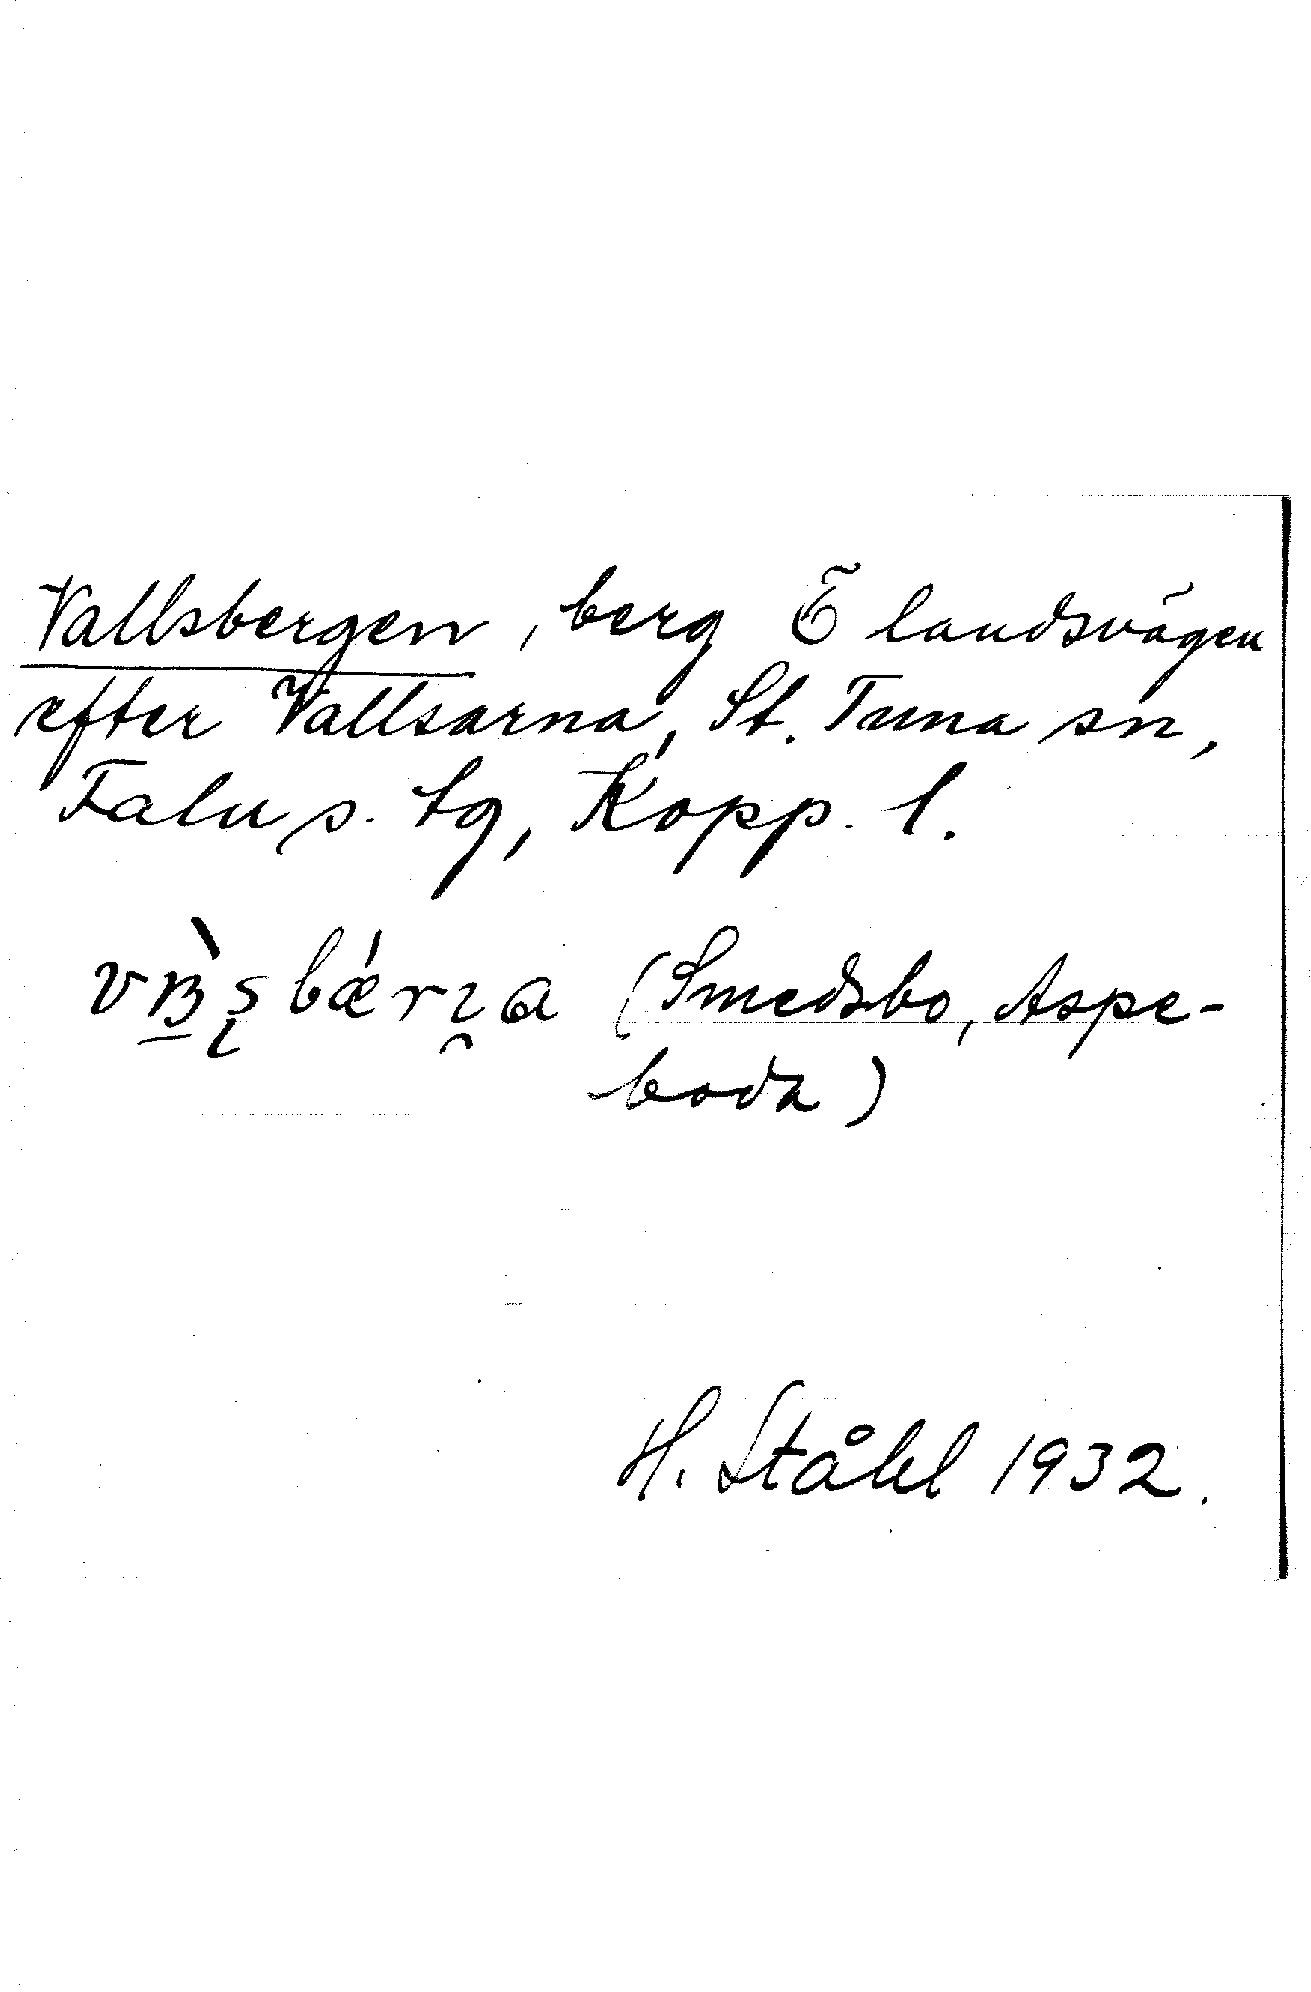 Vallsbergen, berg Ö landsvägen
efter Vallsarna, St. Tuna sn,
Falu s. tg, Kopp. l.
(Smedsbo, Aspe-
boda)
H. Ståhl 1932.